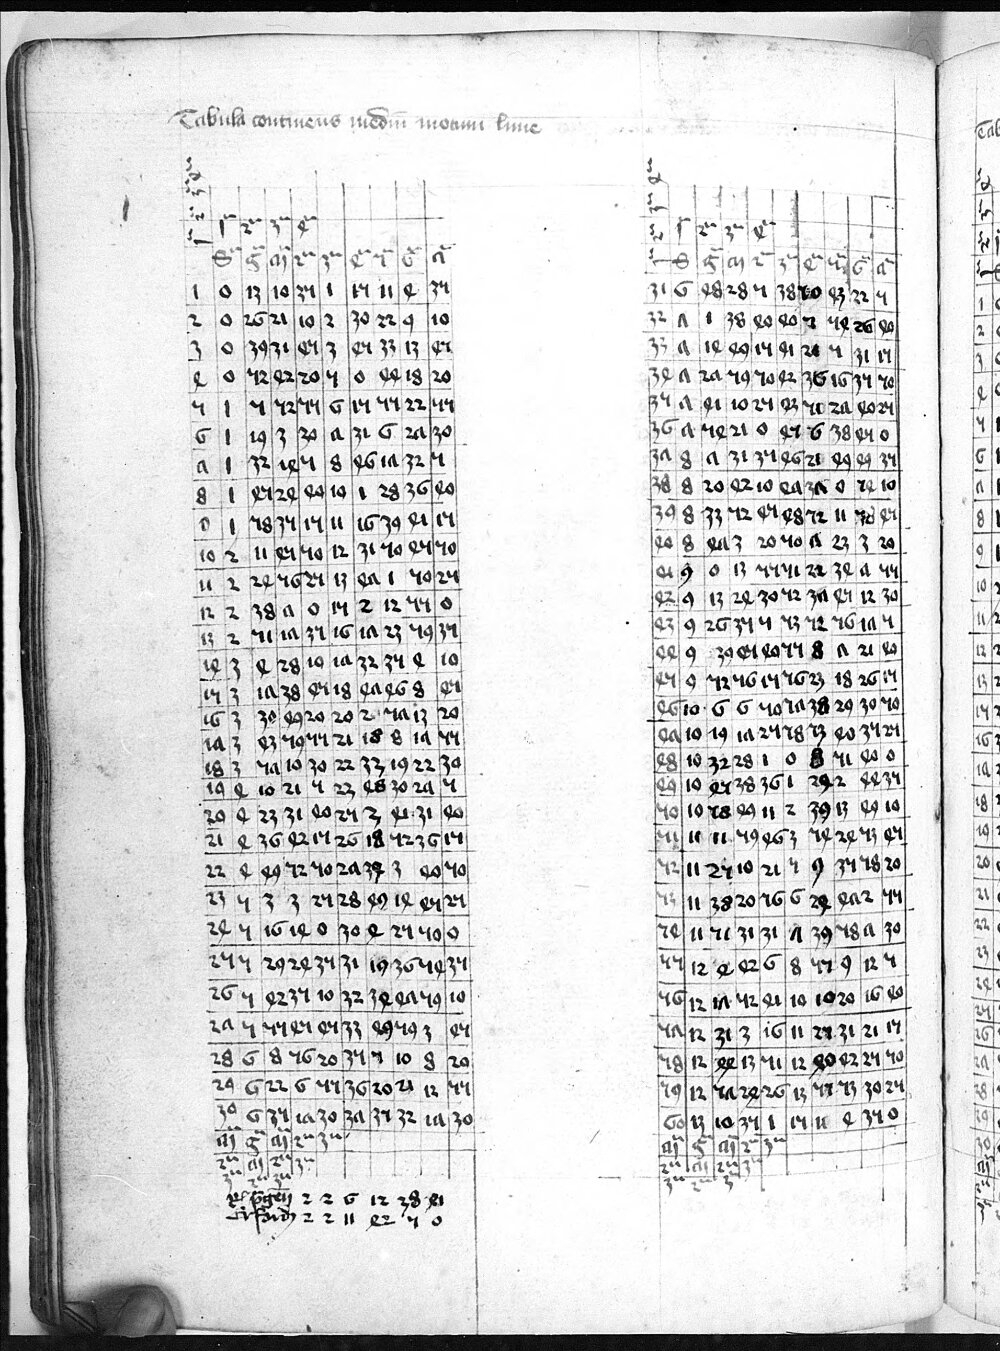 Tabula continens mediū motum lune
1 0 13 10 35 1 15 11 4 35
2 0 26 21 10 2 30 22 9 10
3 0 39 31 45 3 45 33 13 45
4 0 52 42 20 5 0 44 18 20
5 1 5 52 55 6 15 55 22 55
6 1 19 3 30 7 31 6 27 30
7 1 32 14 5 8 46 17 32 5
8 1 45 24 40 10 1 28 36 40
9 1 58 35 15 11 16 39 41 15
10 2 11 45 50 12 31 50 45 50
11 2 24 56 25 13 47 1 50 25
12 2 38 7 0 15 2 12 55 0
13 2 51 17 35 16 17 23 59 35
14 3 4 28 10 17 32 35 4 10
15 3 17 38 45 18 47 46 8 45
16 3 30 49 20 20 2 57 13 20
17 3 43 59 55 21 18 8 17 55
18 3 57 10 30 22 33 19 22 30
19 4 10 21 5 23 48 30 27 5
20 4 23 31 40 25 3 41 31 40
21 4 36 42 15 26 18 52 36 15
22 4 49 52 50 27 34 3 40 50
23 5 3 3 25 28 49 14 45 25
24 5 16 14 0 30 4 25 50 0
25 5 29 24 35 31 19 36 54 35
26 5 42 35 10 32 34 47 59 10
27 5 55 45 45 33 49 59 3 45
28 6 8 56 20 35 5 10 8 20
29 6 22 6 55 36 20 21 12 55
30 6 35 17 30 37 35 32 17 30
2 2 6 12 28 41
2 2 11 42 5 0
31 6 48 28 5 38 50 43 22 5
32 7 1 38 40 40 5 54 26 40
33 7 14 49 15 41 21 5 31 15
34 7 27 59 50 42 36 16 35 50
35 7 41 10 25 43 51 27 40 25
36 7 54 21 0 45 6 38 45 0
37 8 7 31 35 46 21 49 49 35
38 8 20 42 10 47 37 0 54 10
39 8 33 52 45 48 52 11 58 45
40 8 47 3 20 50 7 23 3 20
41 9 0 13 55 51 22 34 7 55
42 9 13 24 30 52 37 45 12 30
43 9 26 35 5 53 52 56 17 5
44 9 39 45 40 55 8 7 21 40
45 9 52 56 15 56 23 18 26 15
46 10 6 6 50 57 38 29 30 50
47 10 19 17 25 58 53 40 35 25
48 10 32 28 1 0 8 51 40 0
49 10 45 38 36 1 24 2 44 35
50 10 58 49 11 2 39 13 49 10
51 11 11 59 46 3 54 24 53 45
52 11 25 10 21 5 9 35 58 20
53 11 38 20 56 6 24 47 2 55
54 11 51 31 31 7 39 58 7 30
55 12 4 42 6 8 55 9 12 5
56 12 17 52 41 10 10 20 16 40
57 12 31 3 16 11 25 31 21 15
58 12 44 13 51 12 40 42 25 50
59 12 57 24 26 13 55 53 30 25
60 13 10 35 1 15 11 4 35 0